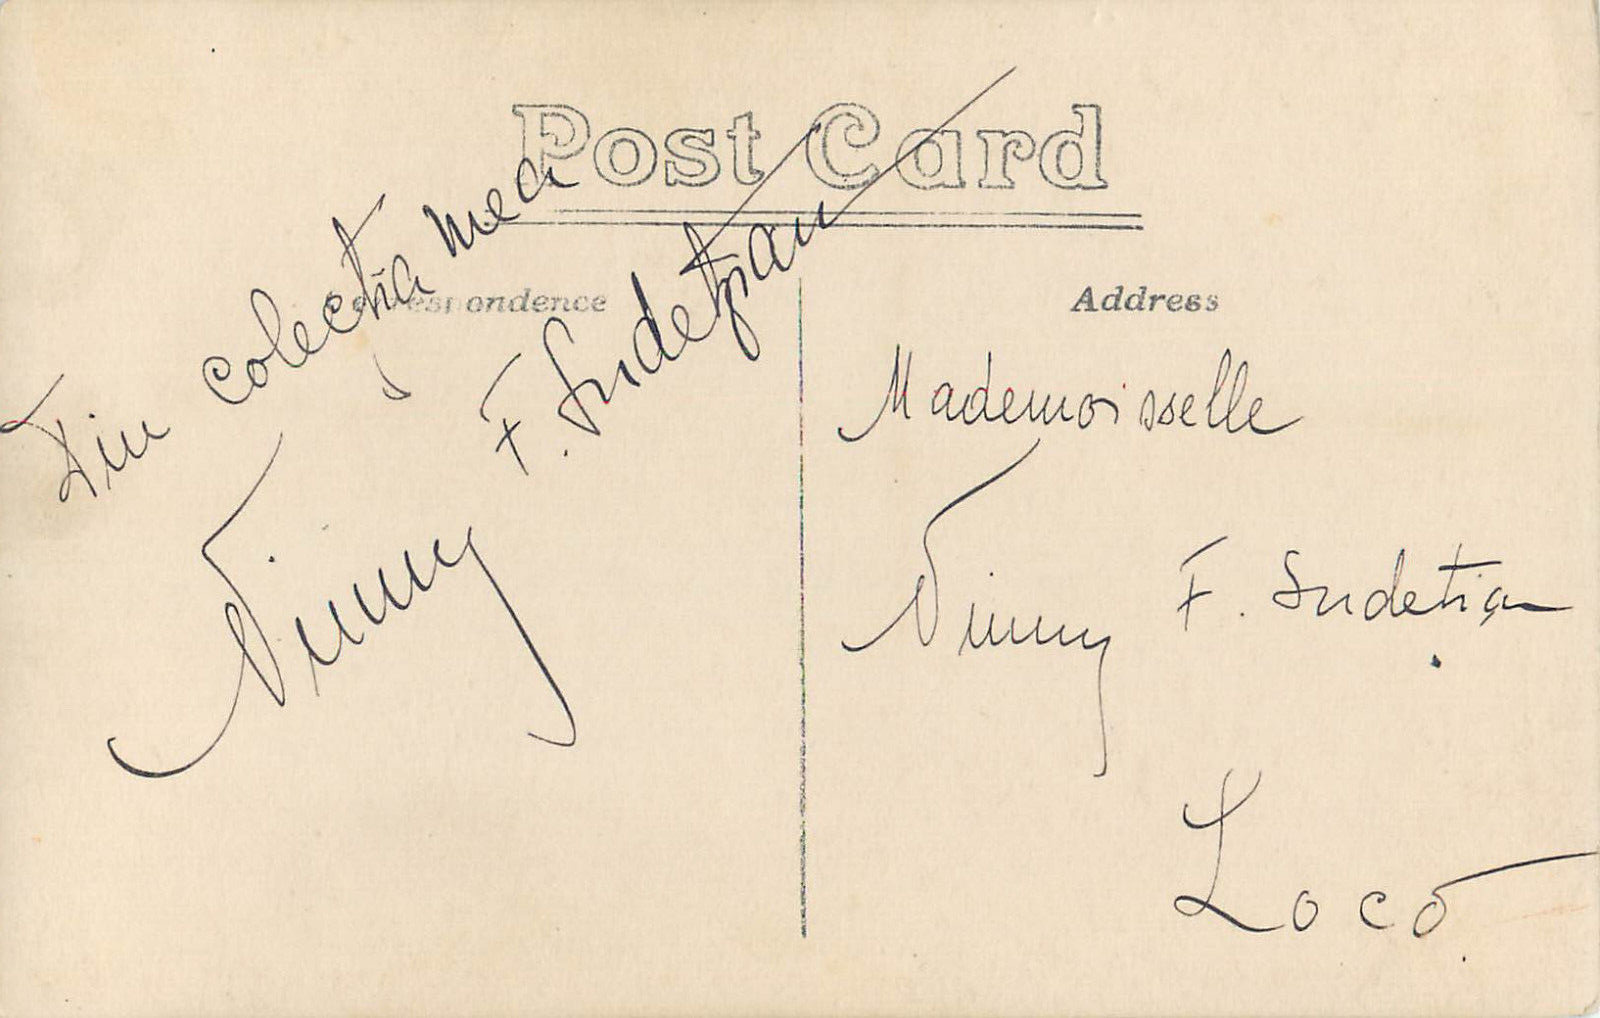 Post Card
Correspondence
Din colecția mea
Ninny
F. Sudețian
Address
Mademoisselle
Ninny F. Sudețian
Loco